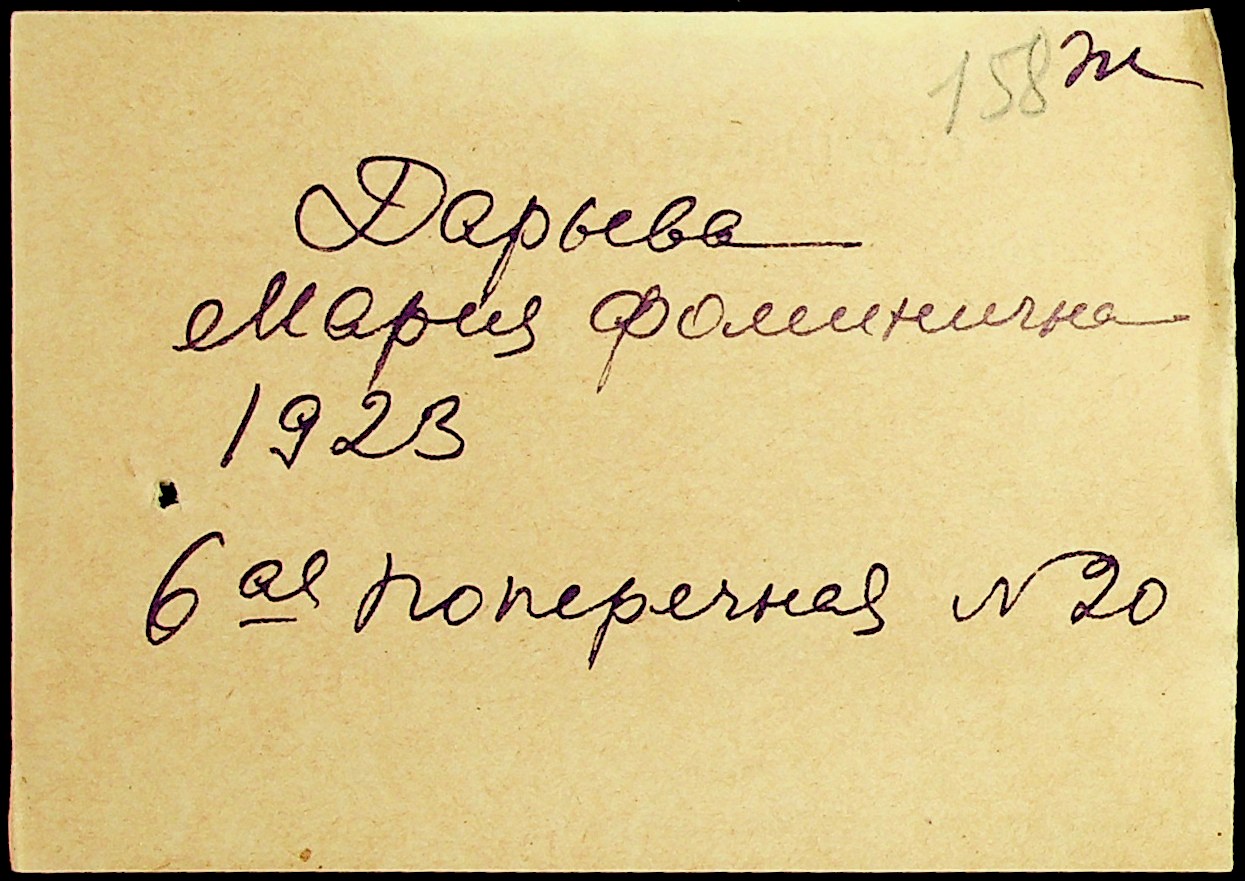 158 ж
Дарьева
Мария Фоминична
1923
6ая поперечная N20